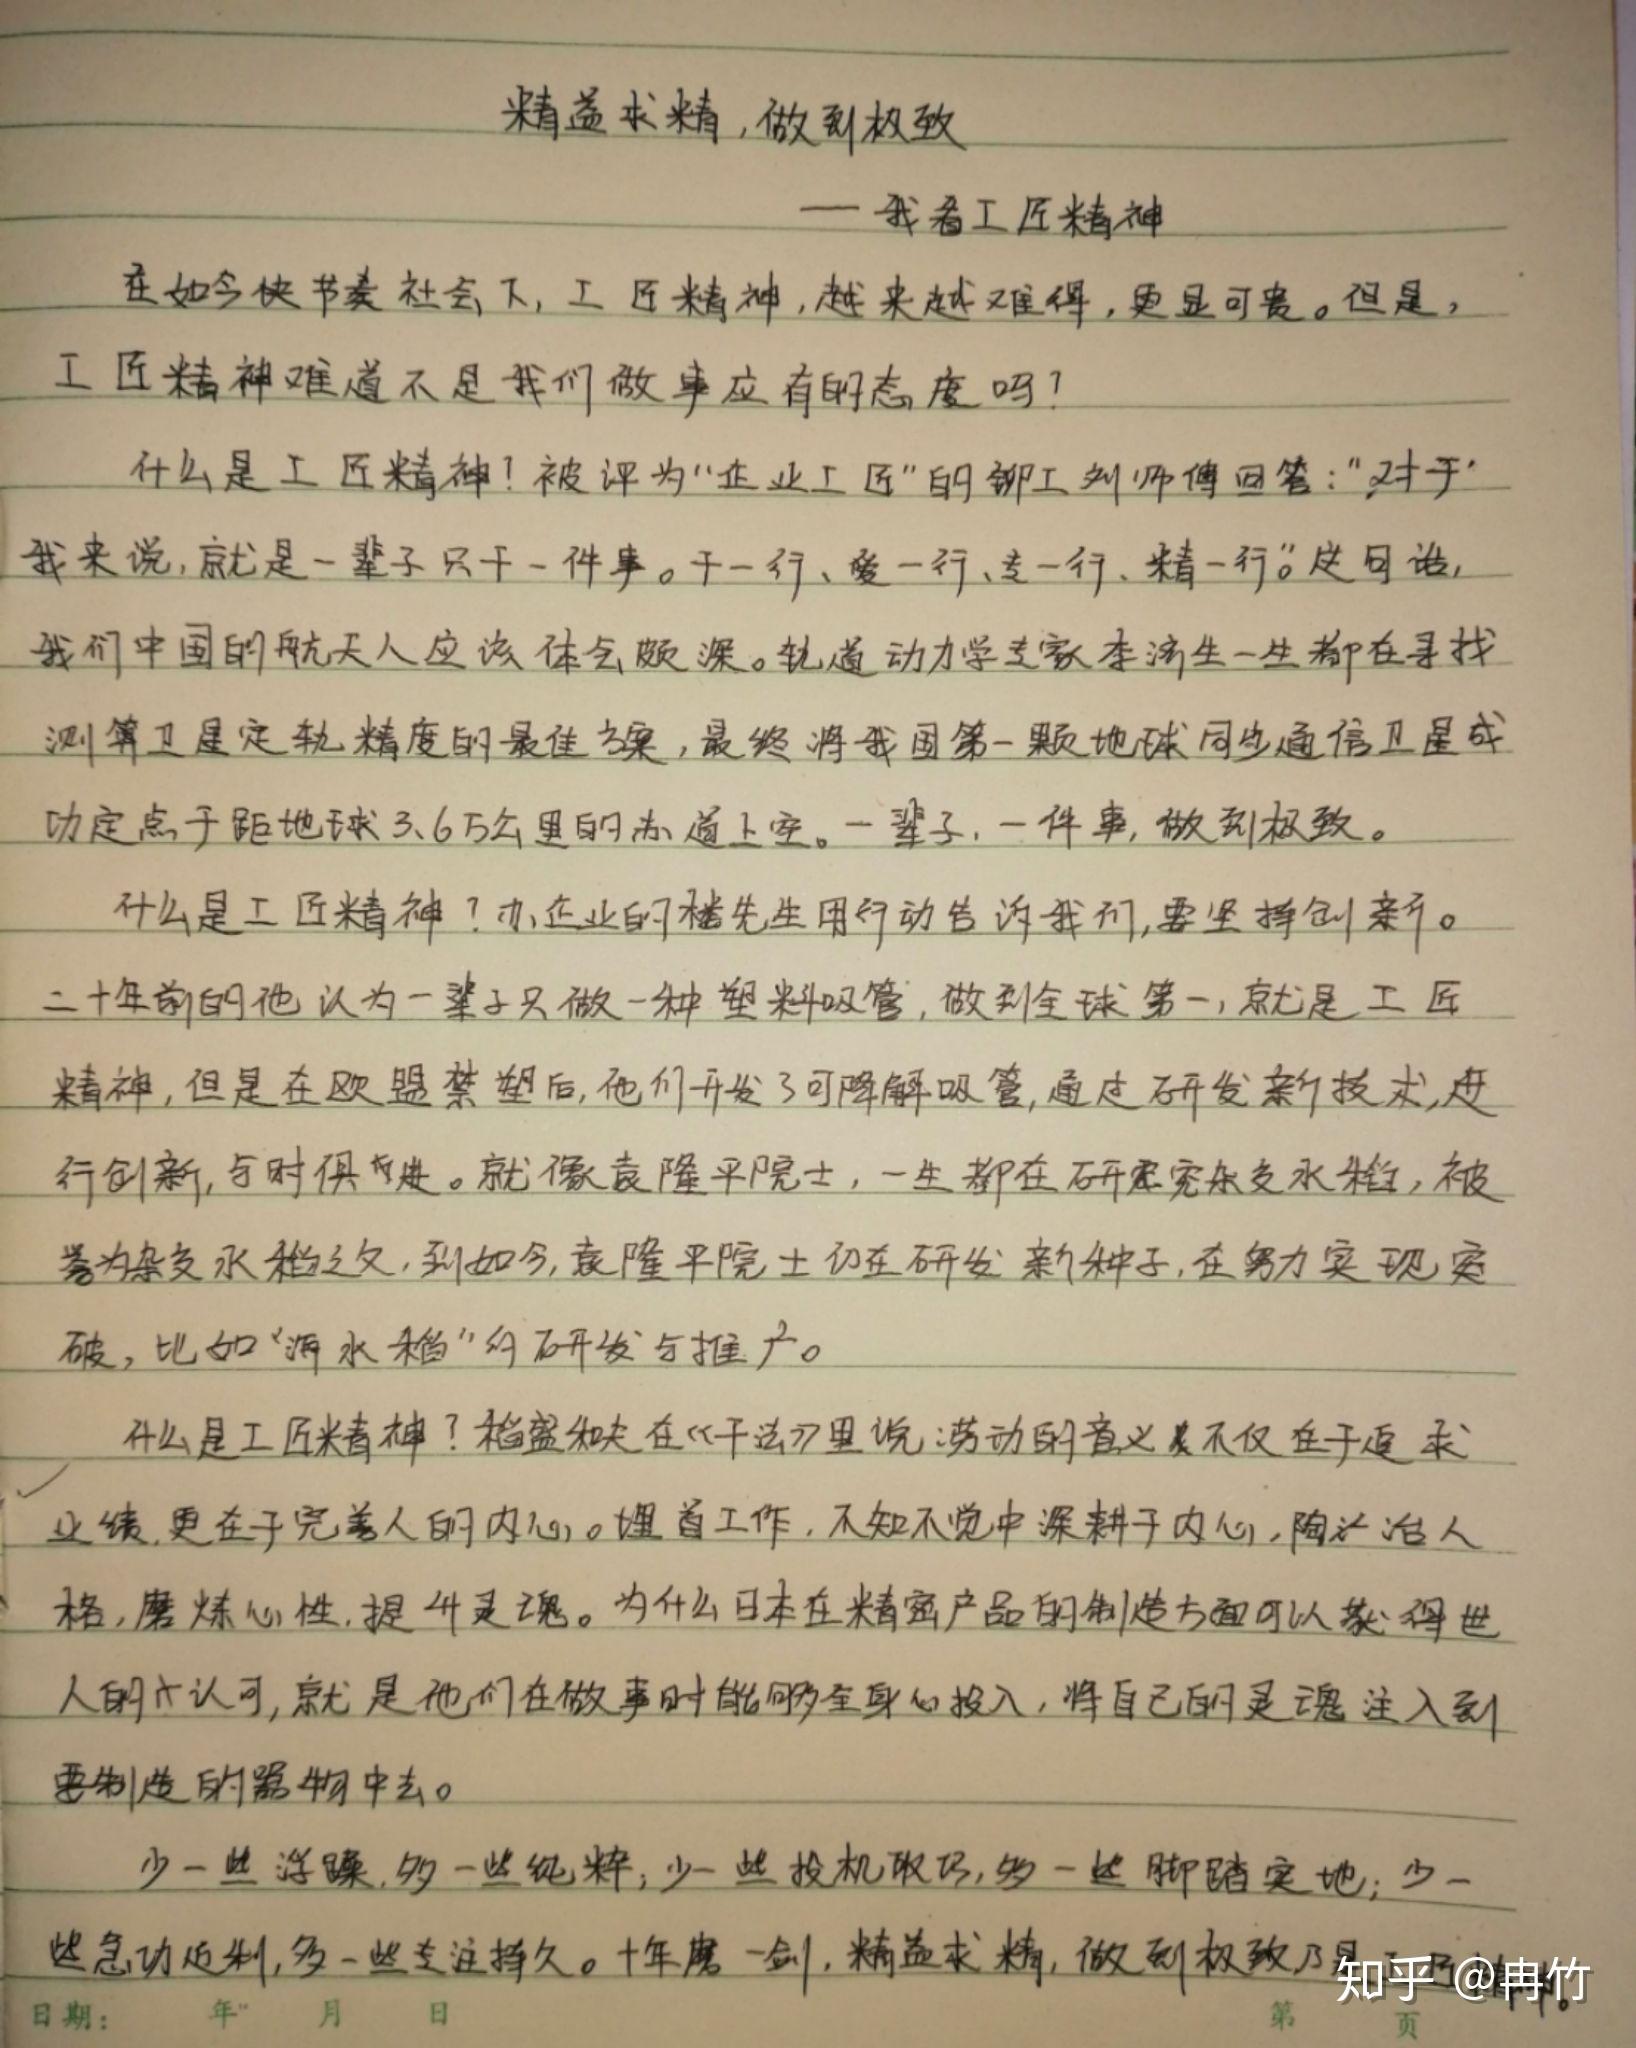 精益求精，做到极致
——我看工匠精神
在如今快节奏社会下，工匠精神，越来越难得，更显可贵。但是，
工匠精神难道不是我们做事应有的态度吗？
什么是工匠精神？被评为“企业工匠”的铆工刘师傅回答：“对于
我来说，就是一辈子只干一件事。干一行、爱一行、专一行、精一行。”这句话，
我们中国的航天人应该体会颇深。轨道动力学专家李济生一生都在寻找
测算卫星定轨精度的最佳方案，最终将我国第一颗地球同步通信卫星成
功定点于距地球3.6万公里的赤道上空。一辈子，一件事，做到极致。
什么是工匠精神？办企业的楼先生用行动告诉我们，要坚持创新。
二十年前的他认为一辈子只做一种塑料吸管，做到全球第一，就是工匠
精神，但是在欧盟禁塑后，他们开发了可降解吸管，通过研发新技术，进
行创新，与时俱进。就像袁隆平院士，一生都在研究杂交水稻，被
誉为杂交水稻之父，到如今，袁隆平院士仍在研发新种子，在努力实现突
破，比如“海水稻”的研发与推广。
什么是工匠精神？稻盛和夫在《干法》里说：劳动的意义不仅在于追求
业绩，更在于完善人的内心。埋首工作，不知不觉中深耕于内心，陶冶人
格，磨炼心性，提升灵魂。为什么日本在精密产品的制造方面可以获得世
人的认可，就是他们在做事时能够全身心投入，将自己的灵魂注入到
要制造的器物中去。
少一些浮躁，多一些纯粹；少一些投机取巧，多一些脚踏实地；少一
些急功近利，多一些专注持久。十年磨一剑，精益求精，做到极致乃是工匠精神。
知乎 @冉竹
日期： 年 月 日 第 页